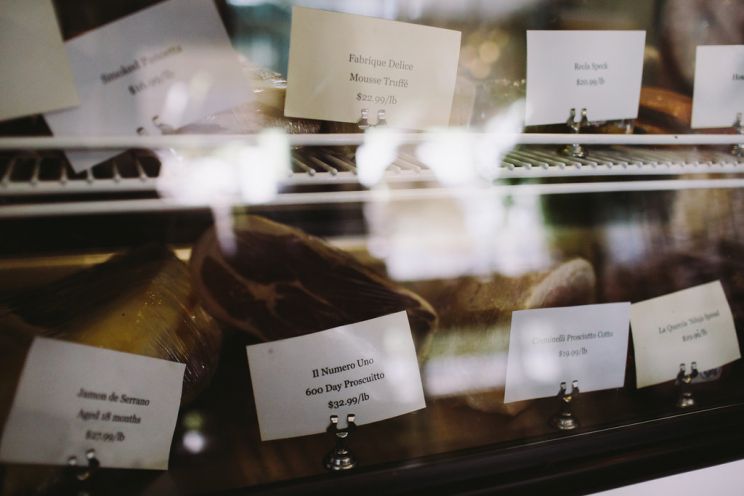 Smoked Pancetta
$16.99/lb
Fabrique Delice
Mousse Truffé
$22.99/lb
Recla Speck
$20.99/lb
Jamon de Serrano
Aged 18 months
$27.99/lb
Il Numero Uno
600 Day Proscuitto
$32.99/lb
Creminelli Prosciutto Cotto
$19.99/lb
La Quercia 'Nduja Spread